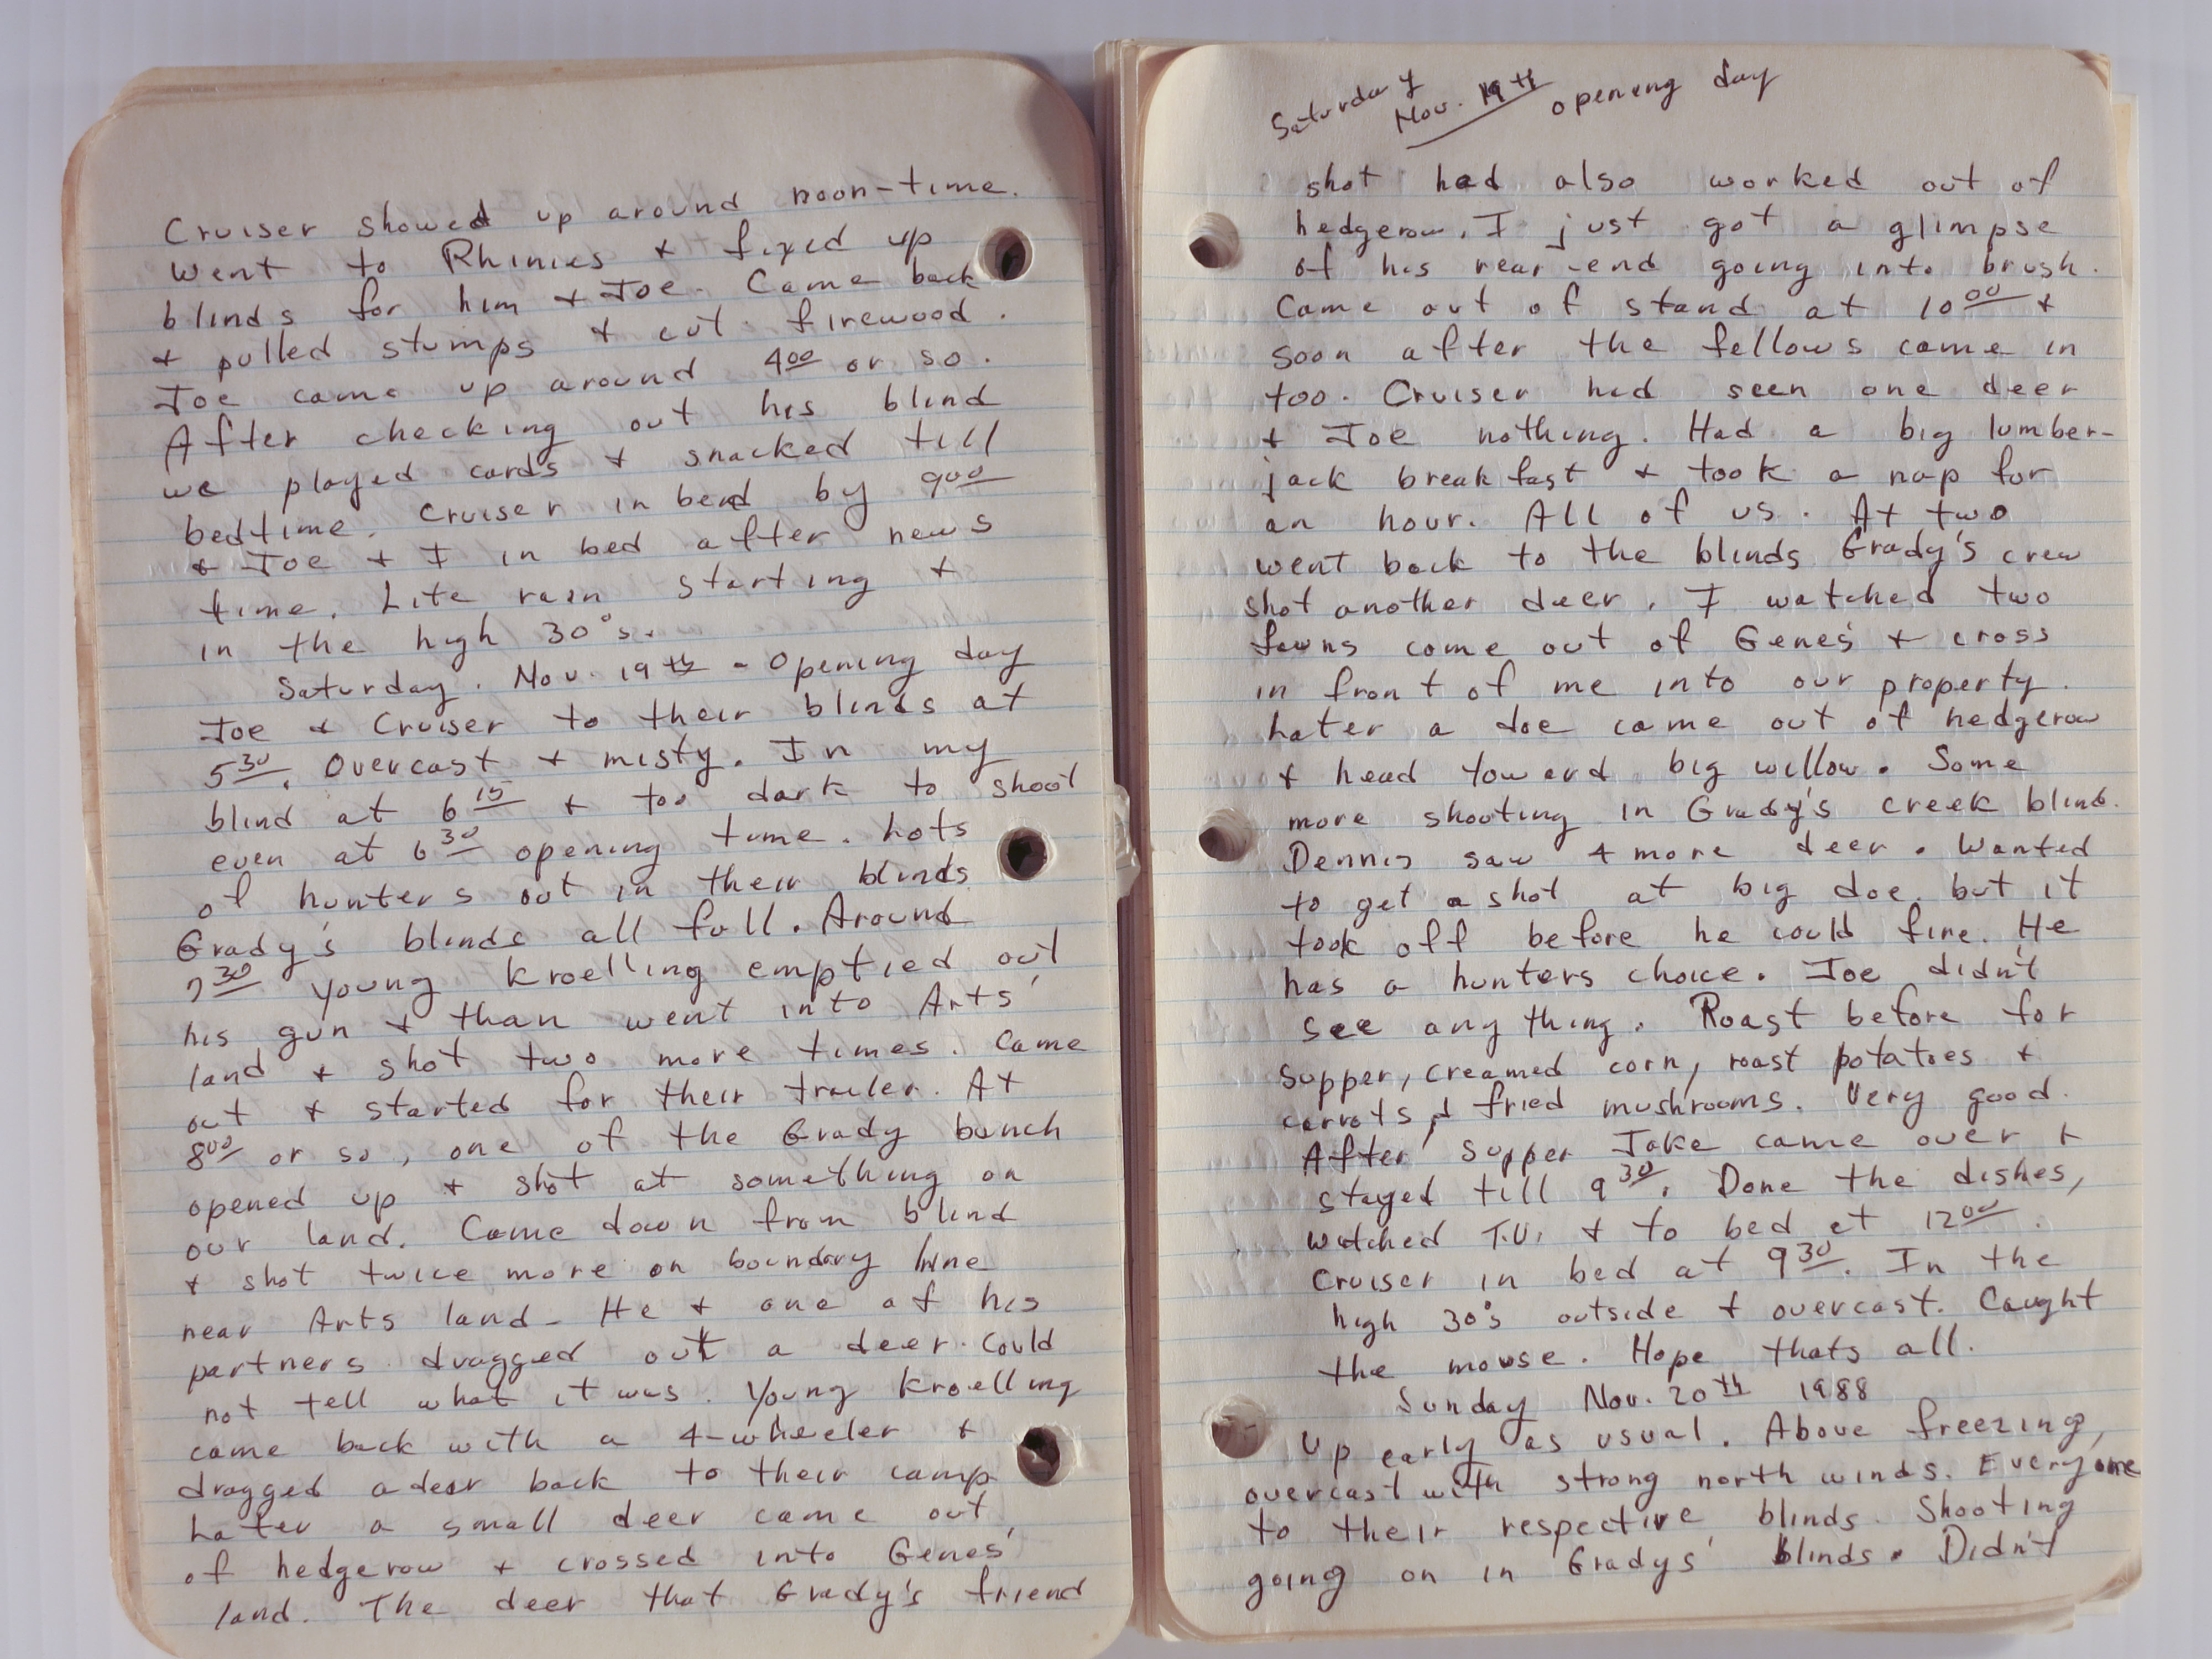 Cruiser showed up around noon-time.
Went to Rhinies & fixed up
blinds for him & Joe. Came back
& pulled stumps & cut firewood.
Joe came up around 400 or so.
After checking out his blind
we played cards & snacked till
bedtime. Cruiser in bed by 900
& Joe & I in bed after news
time. Lite rain starting &
in the high 30°s.
Saturday. Nov. 19th - Opening day
Joe & Cruiser to their blinds at
530. Overcast & misty. In my
blind at 615 & too dark to shoot
even at 630 opening time. Lots
of hunters out in their blinds
Grady's blinds all full. Around
730 young Kroelling emptied out
his gun & than went into Arts'
land & shot two more times. Came
out & started for their trailer. At
800 or so, one of the Grady bunch
opened up & shot at something on
our land. Came down from blind
& shot twice more on boundary line
near Arts land. He & one of his
partners dragged out a deer. Could
not tell what it was. Young Kroelling
came back with a 4-wheeler &
dragged a deer back to their camp
Later a small deer came out
of hedgerow & crossed into Genes'
land. The deer that Grady's friend
Saturday
Nov. 19th opening day
shot had also worked out of
hedgerow. I just got a glimpse
of his rear-end going into brush.
Came out of stand at 1000 &
soon after the fellows came in
too. Cruiser had seen one deer
& Joe nothing. Had a big lumber-
jack breakfast & took a nap for
an hour. All of us. At two
went back to the blinds Grady's crew
shot another deer. I watched two
fawns come out of Genes' & cross
in front of me into our property.
Later a doe came out of hedgerow
& head toward big willow. Some
more shooting in Grady's creek blind.
Dennis saw 4 more deer. Wanted
to get a shot at big doe, but it
took off before he could fire. He
has a hunters choice. Joe didn't
see any thing. Roast before for
supper, creamed corn, roast potatoes &
carrots, & fried mushrooms. Very good.
After supper Jake came over &
stayed till 930. Done the dishes,
watched T.V. & to bed at 1200.
Cruiser in bed at 930. In the
high 30°s outside & overcast. Caught
the mouse. Hope thats all.
Sunday Nov. 20th 1988
Up early as usual. Above freezing,
overcast with strong north winds. Everyone
to their respective blinds. Shooting
going on in Gradys' blinds. Didn't